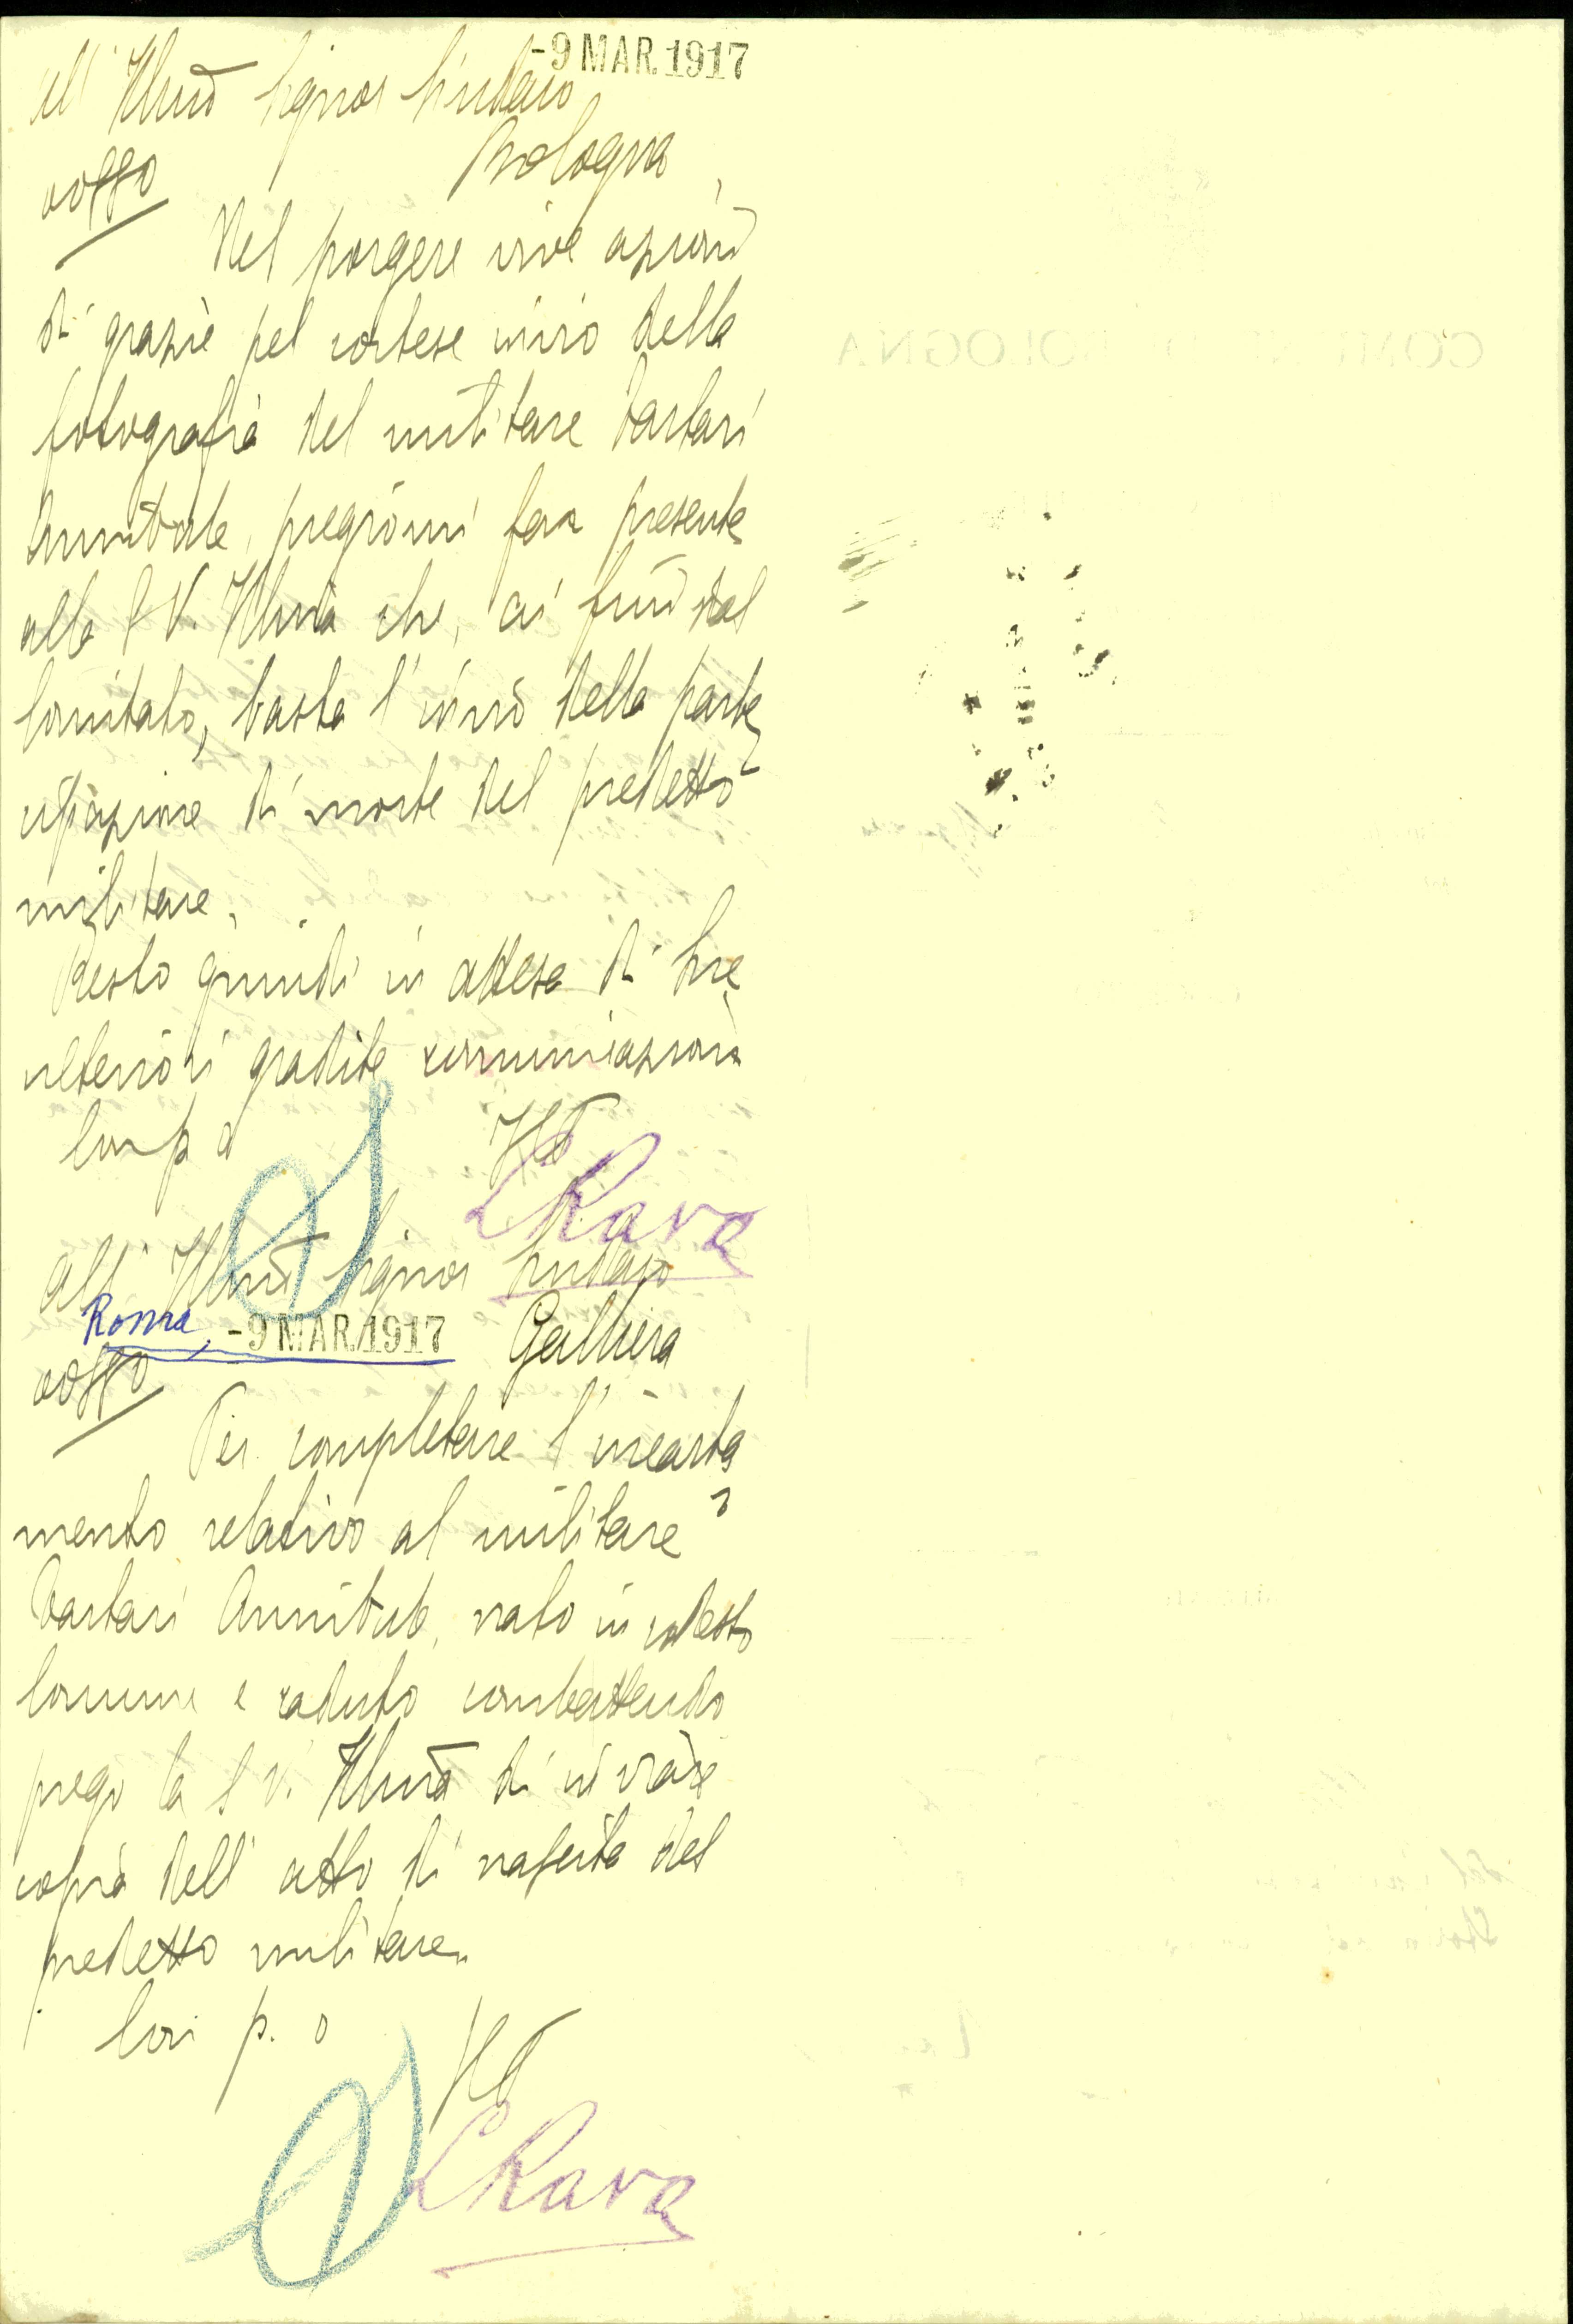 -9 MAR. 1917
All' Illmo Signor Sindaco
Bologna
oggo
Nel porgere vive azioni
di grazie pel cortese invio della
fotografia del militare Tartari
Annibale, pregiomi far presente
alla S V. Illma che, ai fini del
Comitato, basta l'invio della parte
cipazione di morte del predetto
militare.
Resto quindi in attesa di Sue
ulteriori gradite comunicazioni
Con p o
Il P
LRava
All' Illmo Signor Sindaco
Roma, -9 MAR. 1917 Galliera
oggo
Per completare l'incarta
mento relativo al militare
Tartari Annibale, nato in codesto
Comune e caduto combattendo
prego la S V. Illma di inviare
copia dell' atto di nascita del
predetto militare.
Con p. o
Il P
LRava
COMUNE DI BOLOGNA